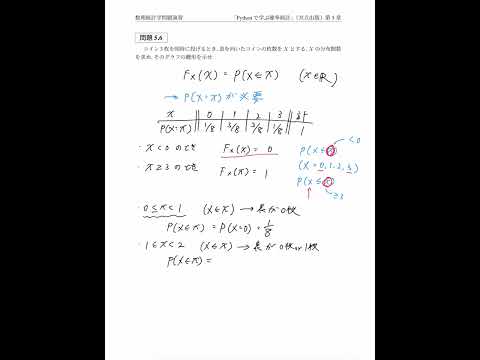 数理統計学問題演習 「Pythonで学ぶ確率統計」(共立出版)第5章
問題 5.6
コイン3枚を同時に投げるとき、表を向いたコインの枚数を X とする。X の分布関数
を求め、そのグラフの概形を示せ.
Fx(x) = P(X≤x) (x∈ℝ)
→ P(X=x) が必要
x 0 1 2 3 計
P(X=x) 1/8 3/8 3/8 1/8 1
・x<0 のとき Fx(x) = 0
・x≥3 のとき Fx(x) = 1
P(X≤x) <0
(X=0,1,2,3)
P(X≤x)
≥3
・0≤x<1 (X≤x) → 表が0枚
P(X≤x) = P(X=0) = 1/8
・1≤x<2 (X≤x) → 表が0枚or1枚
P(X≤x) =